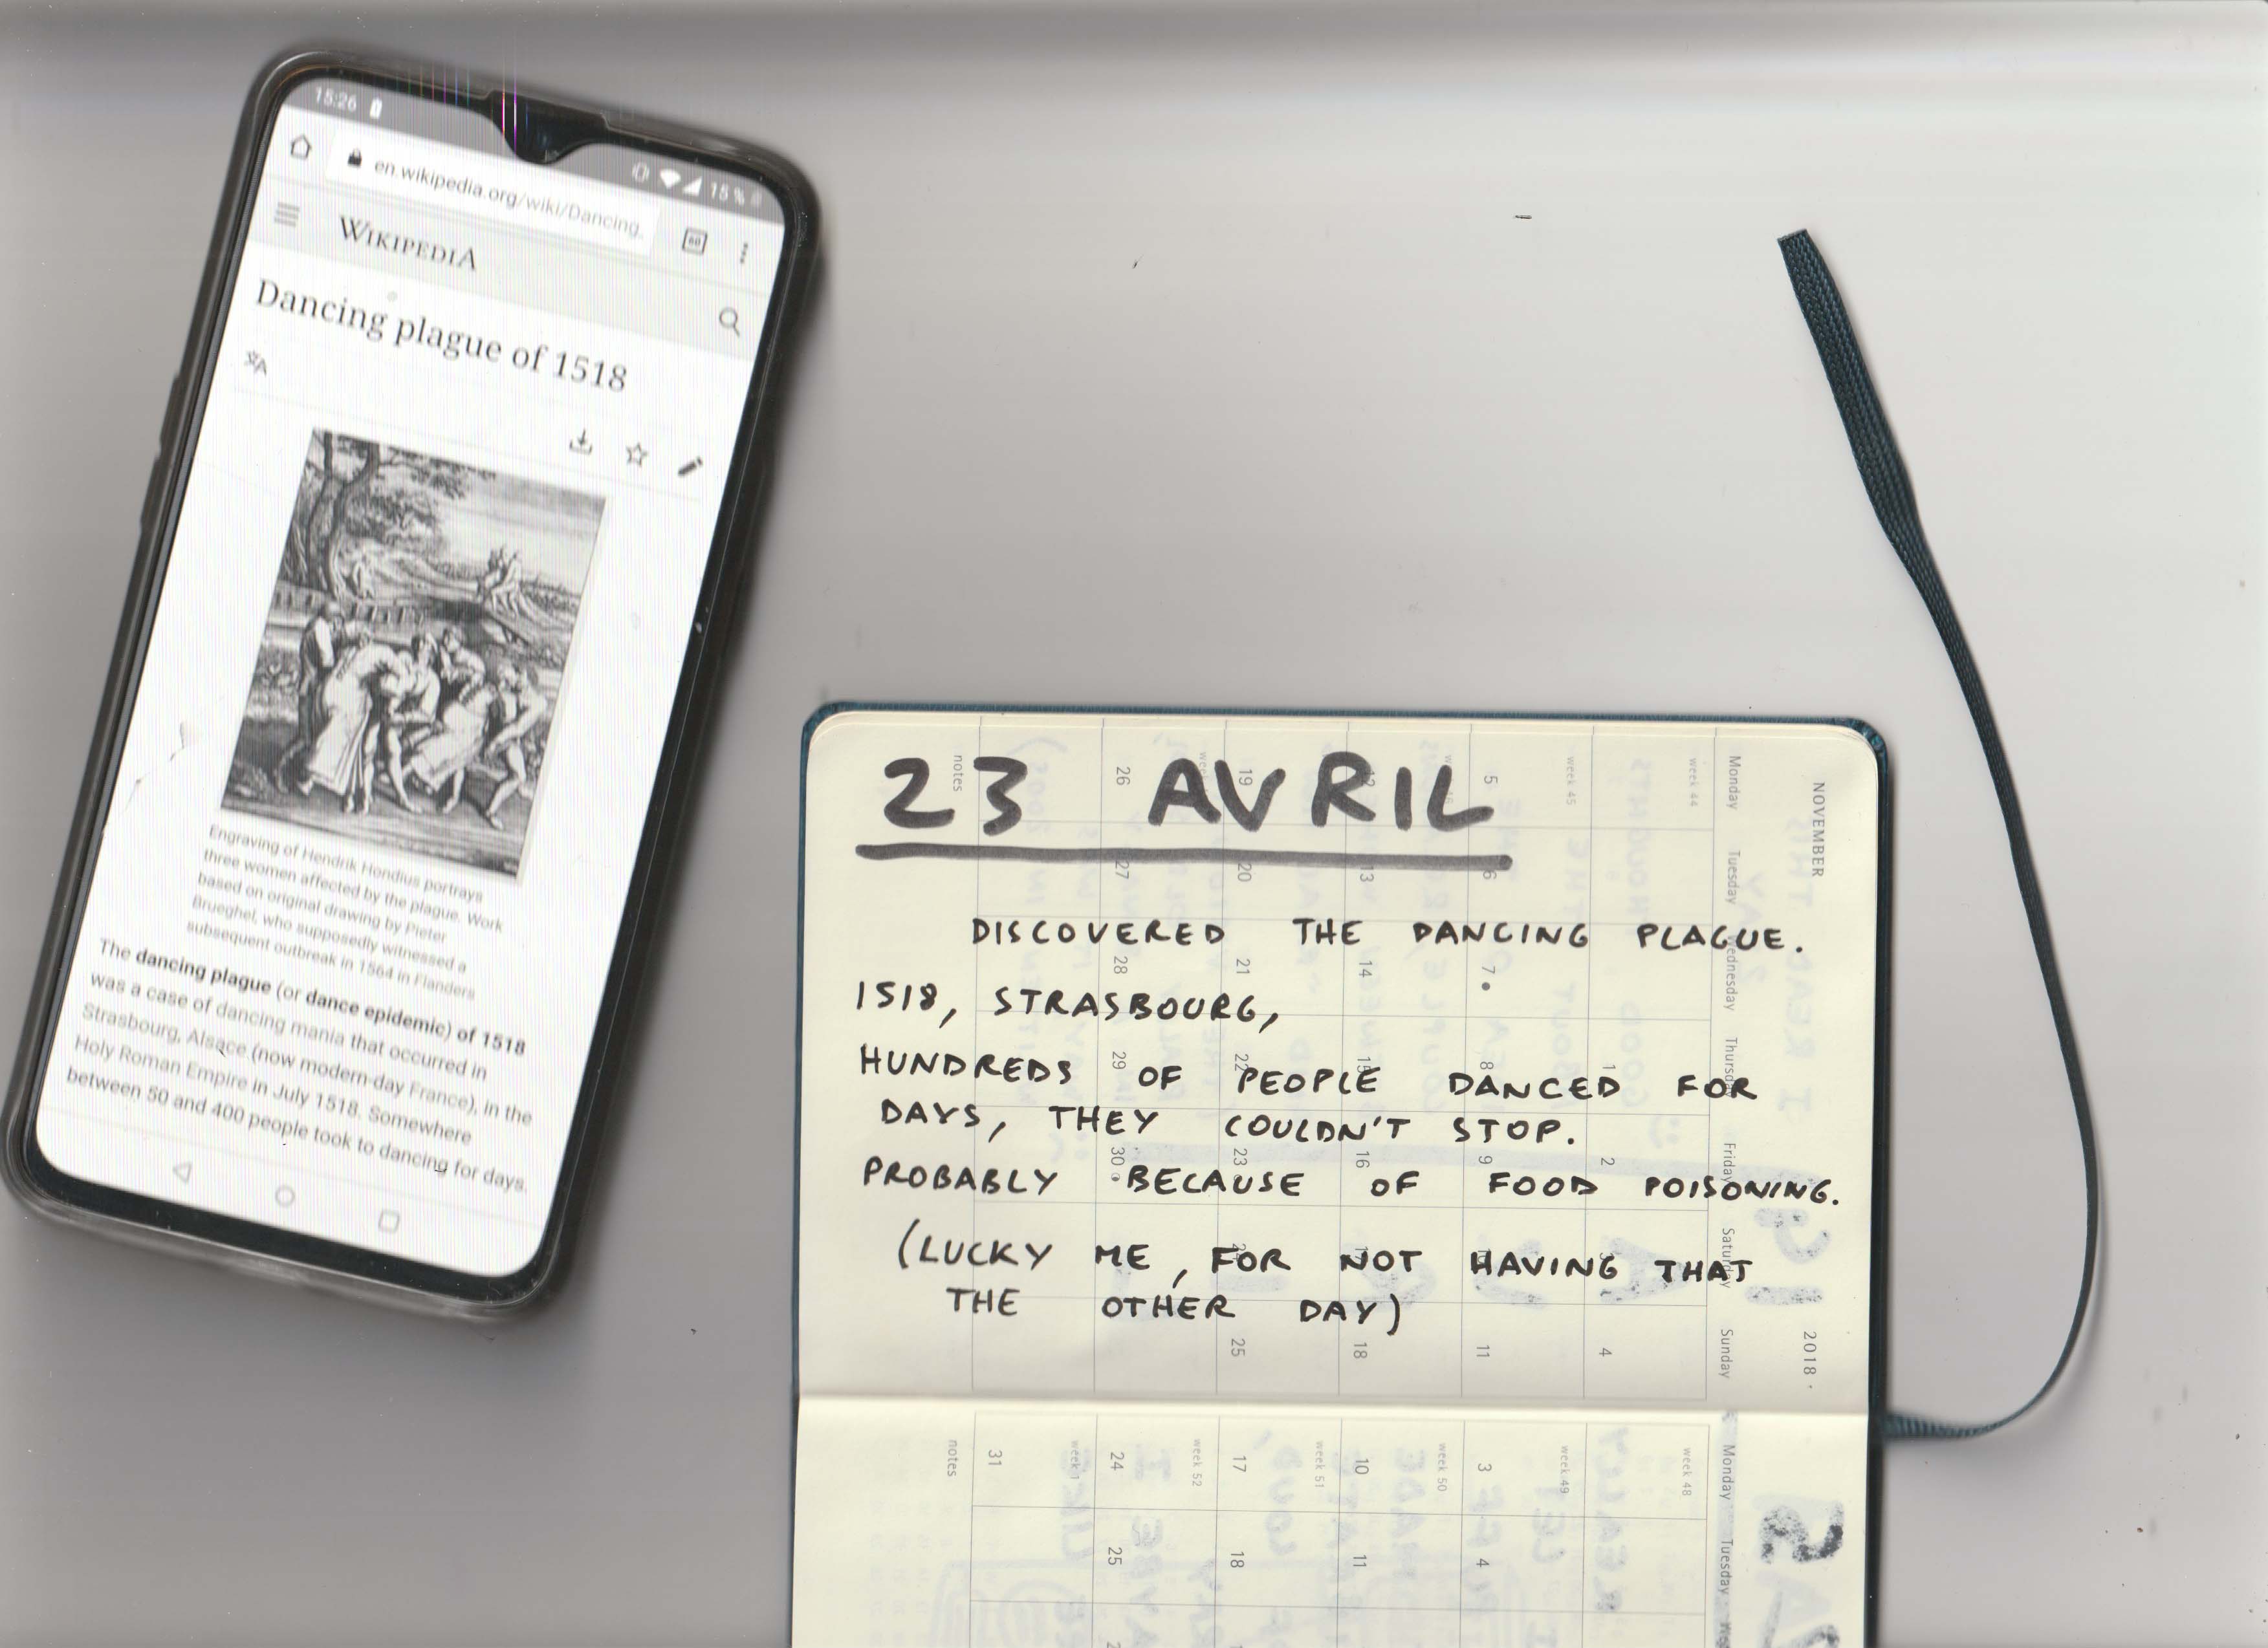 15:26
15%
en.wikipedia.org/wiki/Dancing
60
WIKIPEDIA
Dancing plague of 1518
Engraving of Hendrik Hondius portrays
three women affected by the plague. Work
based on original drawing by Pieter
Brueghel, who supposedly witnessed a
subsequent outbreak in 1564 in Flanders
The dancing plague (or dance epidemic) of 1518
was a case of dancing mania that occurred in
Strasbourg, Alsace (now modern-day France), in the
Holy Roman Empire in July 1518. Somewhere
between 50 and 400 people took to dancing for days.
23 AVRIL
DISCOVERED THE DANCING PLAGUE.
1518, STRASBOURG,
HUNDREDS OF PEOPLE DANCED FOR
DAYS, THEY COULDN'T STOP.
PROBABLY BECAUSE OF FOOD POISONING.
(LUCKY ME, FOR NOT HAVING THAT
THE OTHER DAY)
NOVEMBER 2018
Monday Tuesday Wednesday Thursday Friday Saturday Sunday
week 44 1 2 3 4
week 45 5 6 7 8 9 11
13 14 15 16 17 18
19 20 21 22 23 25
26 27 28 29 30
notes
Monday Tuesday
week 48
week 49 3 4
week 50 10 11
week 51 17 18
week 52 24 25
week 1 31
notes